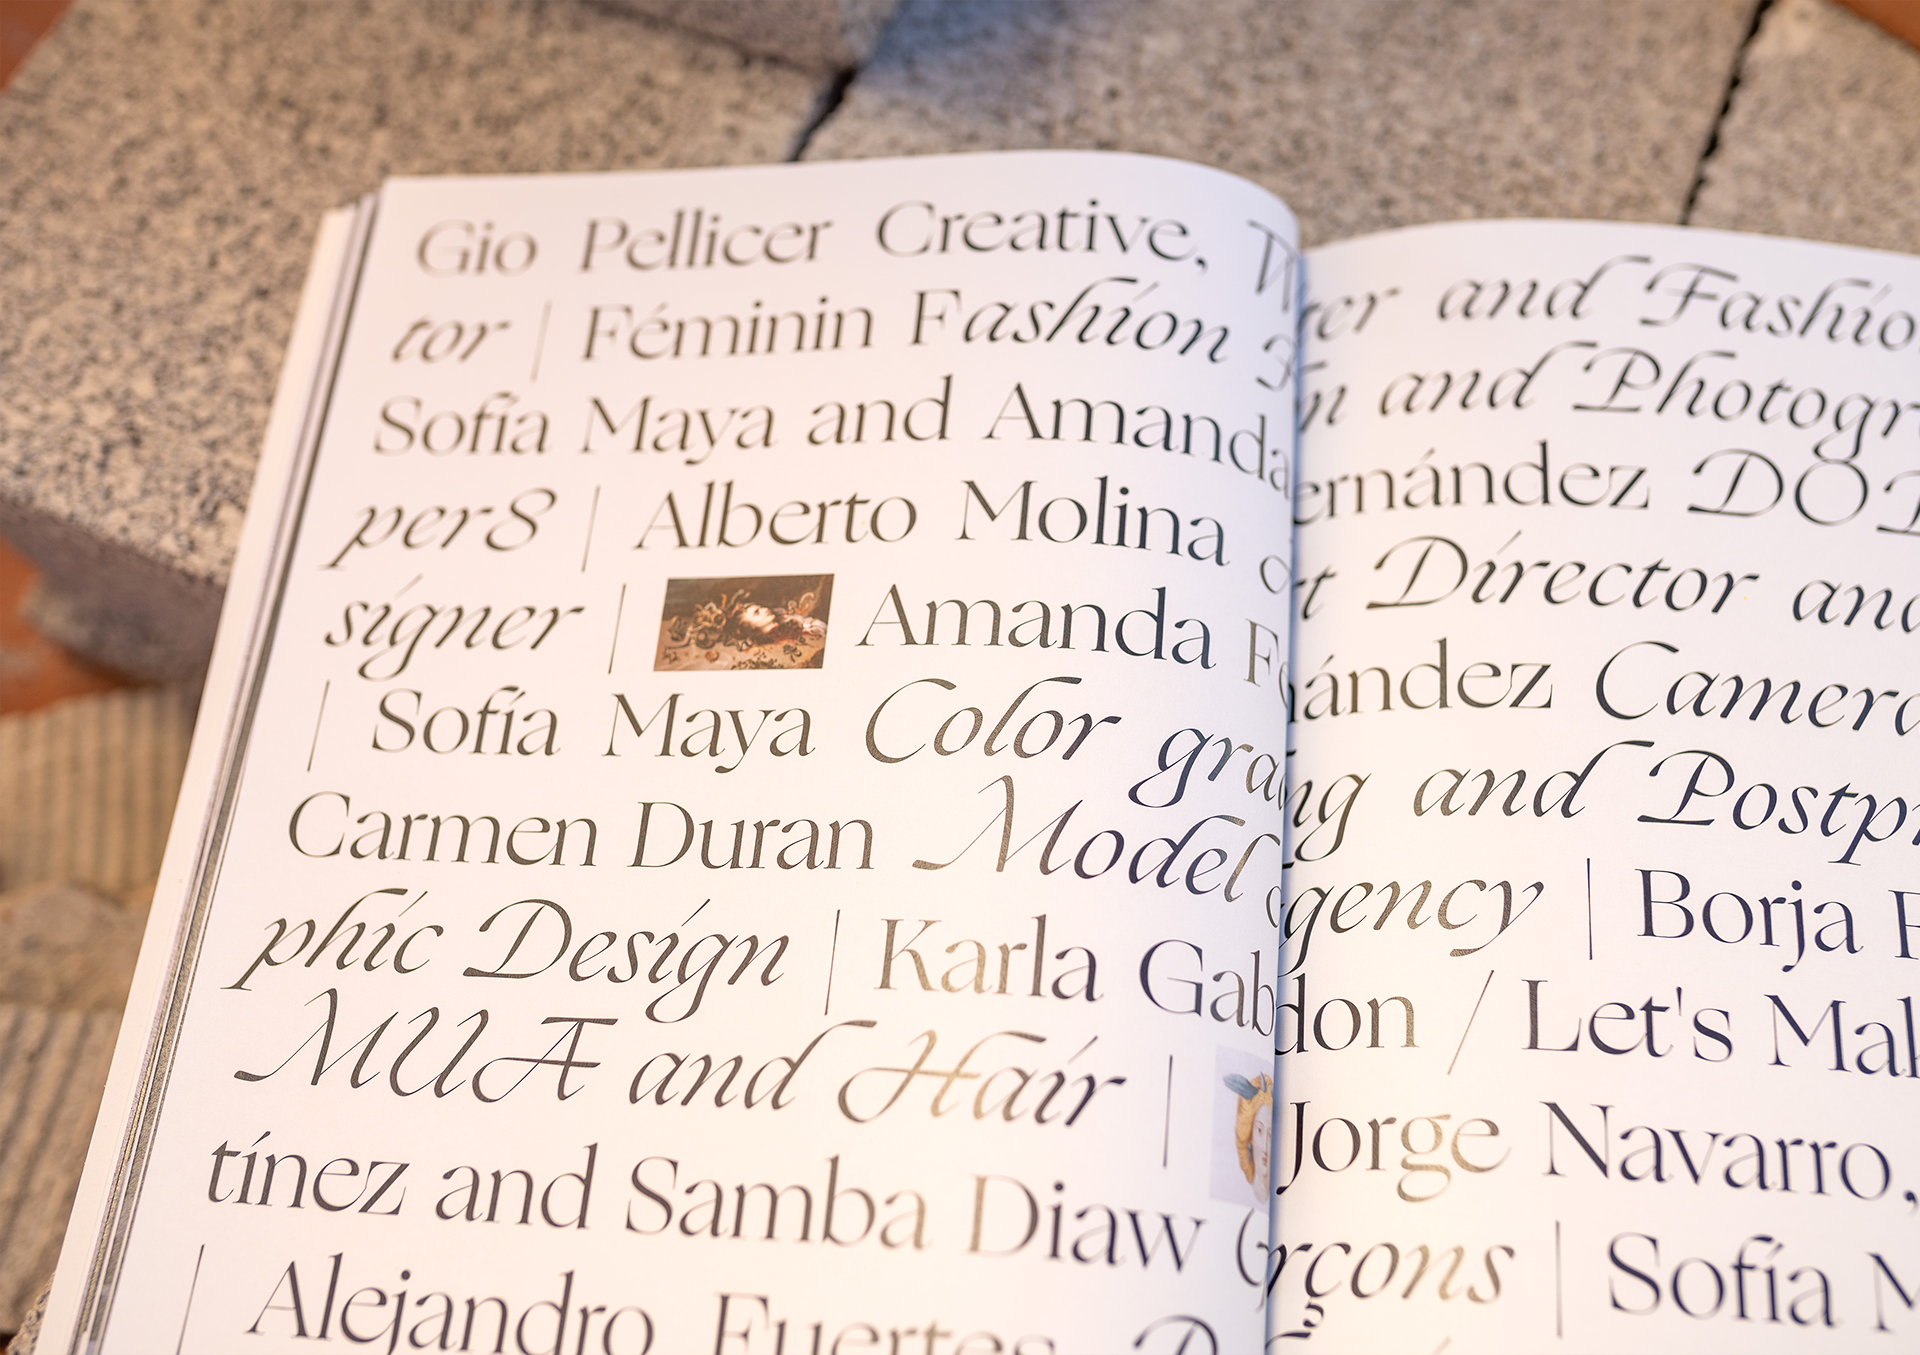 Gio Pellicer Creative, Writer and Fashio
tor | Féminin Fashion and Photogr
Sofía Maya and Amanda ernández DOP
per8 | Alberto Molina Art Director and
signer | Amanda Fernández Camera
| Sofía Maya Color grading and Postpr
Carmen Duran Model agency | Borja
phic Design | Karla Gab don / Let's Mak
MUA and Hair | Jorge Navarro,
tínez and Samba Diaw Garçons | Sofía M
| Alejandro Fuertes